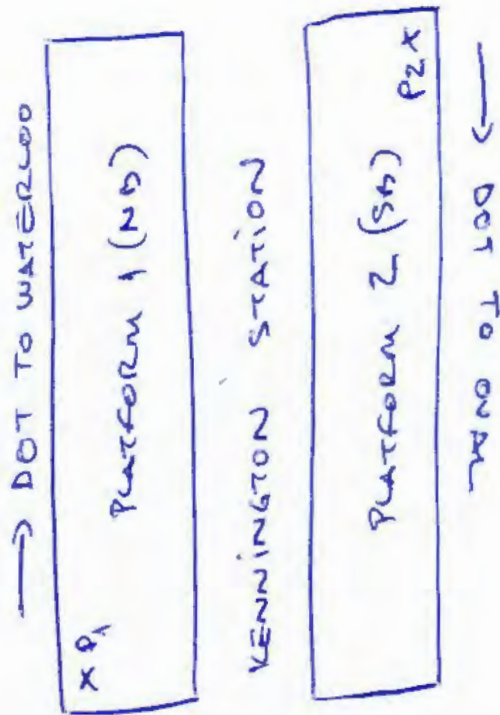 → DOT TO WATERLOO
PLATFORM 1 (NB)
x P1
KENNINGTON STATION
P2 x
PLATFORM 2 (SB)
← DOT TO OVAL